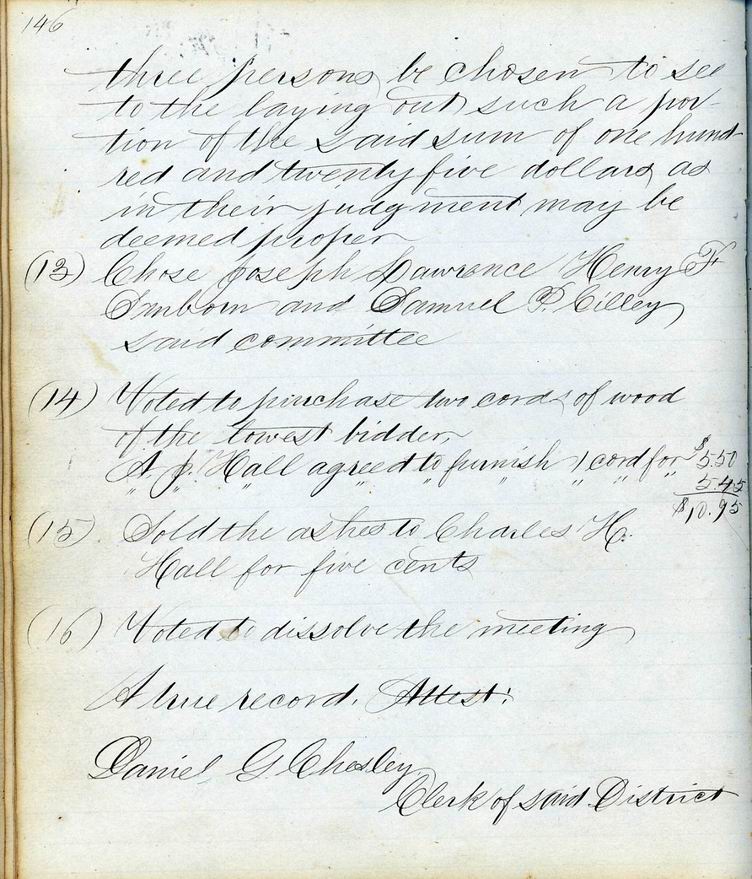 146
three persons be chosen to see
to the laying out such a por-
tion of the said sum of one hund-
red and twenty five dollars as
in their judgment may be
deemed proper
(13) Chose Joseph Lawrence Henry F.
Sanborn and Samuel P. Cilley
said committee
(14) Voted to purchase two cords of wood
of the lowest bidder,
A. J. Hall agreed to furnish 1 cord for $5.50
" " " " " " " " 5.45
$10.95
(15). Sold the ashes to Charles H.
Hall for five cents
(16) Voted to dissolve the meeting
A true record. Attest:
Daniel G. Chesley
Clerk of said District